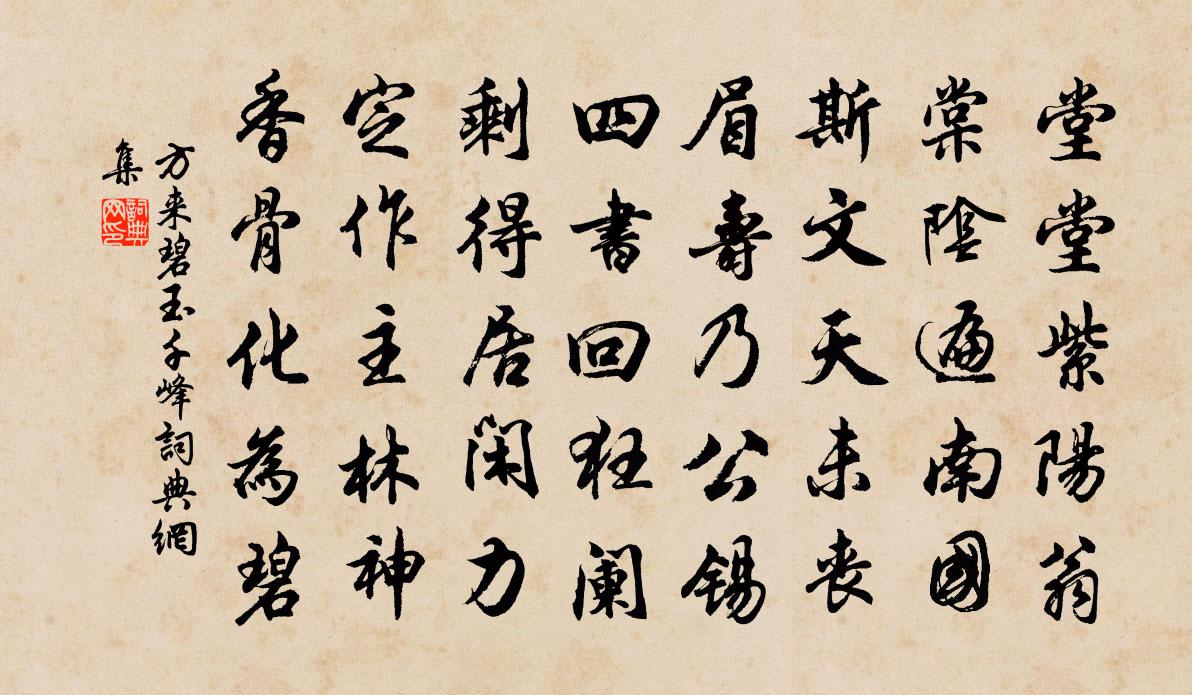 堂堂紫陽翁
棠陰遍南國
斯文天未丧
眉壽乃公锡
四書回狂阑
剩得居闲力
定作主林神
香骨化為碧
方来碧玉千峰詞典網
集
詞典
网印